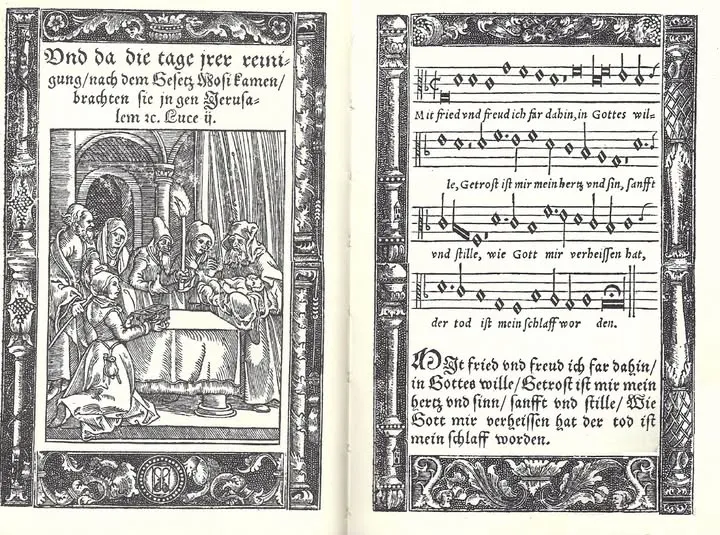 Vnd da die tage jrer reini-
gung/nach dem Gesetz Mosi kamen/
brachten sie jn gen Jerusa-
lem ꝛc. Luce ij.
Mit fried vnd freud ich far dahin, in Gottes wil-
le, Getrost ist mir mein hertz vnd sin, sanfft
vnd stille, wie Gott mir verheissen hat,
der tod ist mein schlaff wor den.
MIt fried vnd freud ich far dahin/
in Gottes wille/ Getrost ist mir mein
hertz vnd sinn/ sanfft vnd stille/ Wie
Gott mir verheissen hat der tod ist
mein schlaff worden.